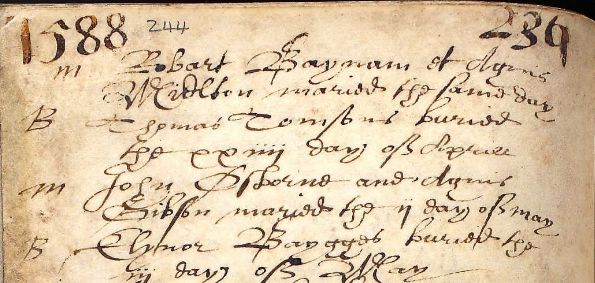 1588 244 239
m Robart Baynam et Agnis
Midlton maried the same day
B Thomas Tomsons buried
the xxiiii day off Aprill
m John Osborne and Agnis
Gibson maried the ij day off may
B Elynor Baggges buried the
iij day off May